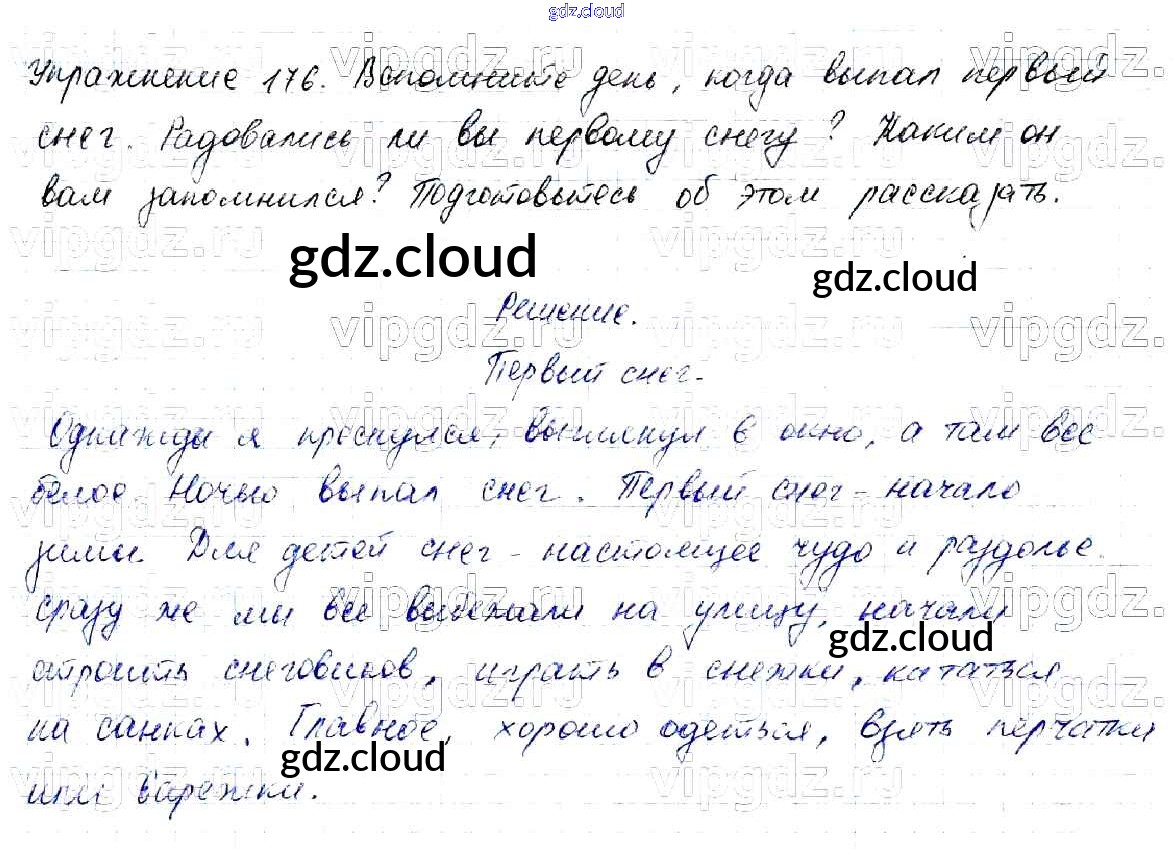 gdz.cloud
Упражнение 176. Вспомните день, когда выпал первый
снег. Радовались ли вы первому снегу? Каким он
вам запомнился? Подготовьтесь об этом рассказать.
gdz.cloud
gdz.cloud
Решение.
Первый снег.
Однажды я проснулся, выглянул в окно, а там все
белое. Ночью выпал снег. Первый снег - начало
зимы. Для детей снег - настоящее чудо и раздолье.
сразу же мы все выбежали на улицу, начали
gdz.cloud
строить снеговиков, играть в снежки, кататься
на санках. Главное, хорошо одеться, взять перчатки
gdz.cloud
или варежки.